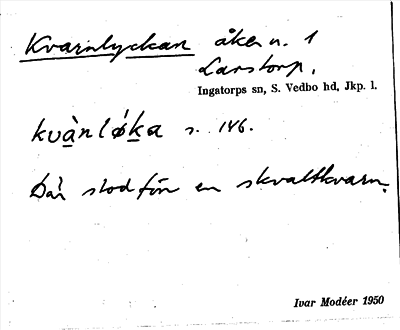 Kvarnlyckan åker n. 1
Larstorp.
Ingatorps sn, S. Vedbo hd, Jkp. l.
kvànlø̀ka s. 146.
Där stod förr en skvaltkvarn.
Ivar Modéer 1950